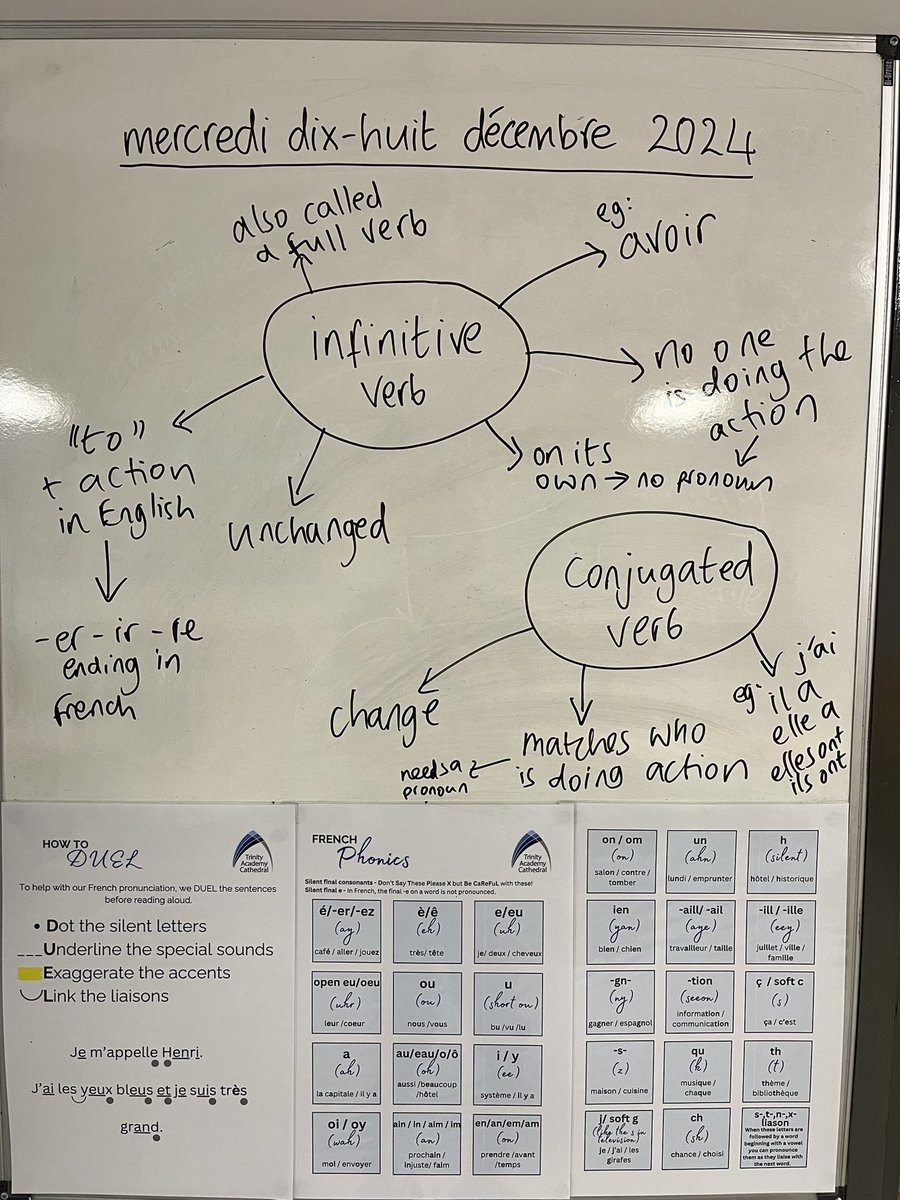 mercredi dix-huit décembre 2024
also called
a full verb
eg:
avoir
infinitive
verb
no one
is doing the
action
on its
own → no pronoun
"to"
+ action
in English
unchanged
-er -ir -re
ending in
french
conjugated
verb
change
matches who
is doing action
needs a
pronoun
eg: j'ai
il a
elle a
elles ont
ils ont
HOW TO
DUEL
Trinity
Academy
Cathedral
To help with our French pronunciation, we DUEL the sentences
before reading aloud.
• Dot the silent letters
___Underline the special sounds
Exaggerate the accents
Link the liaisons
Je m'appelle Henri.
J'ai les yeux bleus et je suis très
grand.
FRENCH
Phonics
Trinity
Academy
Cathedral
Silent final consonants - Don't Say These Please X but Be CaReFuL with these!
Silent final e - in French, the final -e on a word is not pronounced.
é/-er/-ez
(ay)
café / aller / jouez
è/ê
(eh)
très/ tête
e/eu
(uh)
je/ deux / cheveux
open eu/oeu
(uhr)
leur /coeur
ou
(ou)
nous /vous
u
(short ou)
bu /vu /lu
a
(ah)
la capitale / il y a
au/eau/o/ô
(oh)
aussi /beaucoup
/hôtel
i / y
(ee)
système / il y a
oi / oy
(wah)
moi / envoyer
ain / in / aim / im
(an)
prochain /
injuste/ faim
en/an/em/am
(on)
prendre /avant
/temps
on / om
(on)
salon / contre /
tomber
un
(ahn)
lundi / emprunter
h
(silent)
hôtel / historique
ien
(yan)
bien / chien
-aill/ -ail
(aye)
travailleur / taille
-ill / -ille
(eey)
juillet / ville /
famille
-gn-
(ny)
gagner / espagnol
-tion
(seeon)
information /
communication
ç / soft c
(s)
ça / c'est
-s-
(z)
maison / cuisine
qu
(k)
musique /
chaque
th
(t)
thème /
bibliothèque
j/ soft g
(like the s in
television)
je / j'ai / les
girafes
ch
(sh)
chance / choisi
s-,t-,n-,x-
liason
When these letters are
followed by a word
beginning with a vowel
you can pronounce
them as they liaise with
the next word.